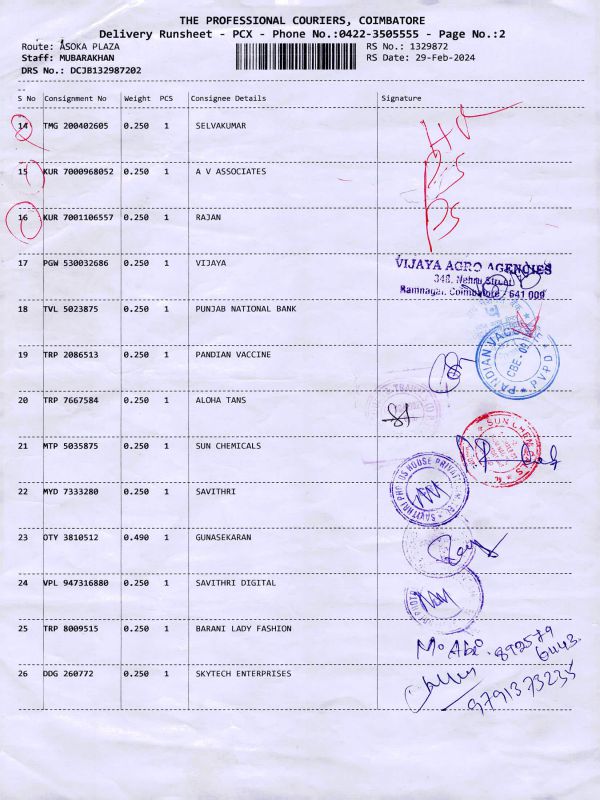 THE PROFESSIONAL COURIERS, COIMBATORE
Delivery Runsheet - PCX - Phone No.:0422-3505555 - Page No.:2
Route: ASOKA PLAZA RS No.: 1329872
Staff: MUBARAKHAN RS Date: 29-Feb-2024
DRS No.: DCJB132987202
S No Consignment No Weight PCS Consignee Details Signature
14 TMG 200402605 0.250 1 SELVAKUMAR
15 KUR 7000968052 0.250 1 A V ASSOCIATES
16 KUR 7001106557 0.250 1 RAJAN
17 PGW 530032686 0.250 1 VIJAYA
VIJAYA AGRO AGENCIES
348, Nehru Street
Ramnagar, Coimbatore - 641 009
18 TVL 5023875 0.250 1 PUNJAB NATIONAL BANK
19 TRP 2086513 0.250 1 PANDIAN VACCINE
PANDIAN VACCINE
CBE-09
PVPD
20 TRP 7667584 0.250 1 ALOHA TANS
21 MTP 5035875 0.250 1 SUN CHEMICALS
SUN CHEMICALS
22 MYD 7333280 0.250 1 SAVITHRI
SAVITHRI PHOTOS HOUSE PRIVATE
23 OTY 3810512 0.490 1 GUNASEKARAN
24 VPL 947316880 0.250 1 SAVITHRI DIGITAL
25 TRP 8009515 0.250 1 BARANI LADY FASHION
26 DDG 260772 0.250 1 SKYTECH ENTERPRISES
9791373235